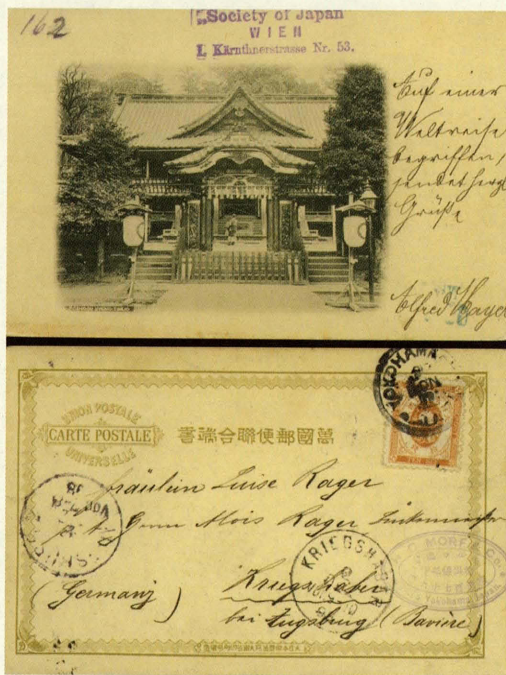 162
Society of Japan
WIEN
I. Kärnthnerstrasse Nr. 53.
Auf einer
Weltreise
begriffen,
sendet herzl.
Grüße
Alfred Mayer
UNION POSTALE
CARTE POSTALE
UNIVERSELLE
書端合聯便郵國萬
YOKOHAMA
Fräulein Luise Rager
Herrn Alois Rager
KRIEGSHABER
Kriegshaber
(Germany)
bei Augsburg (Bavière)